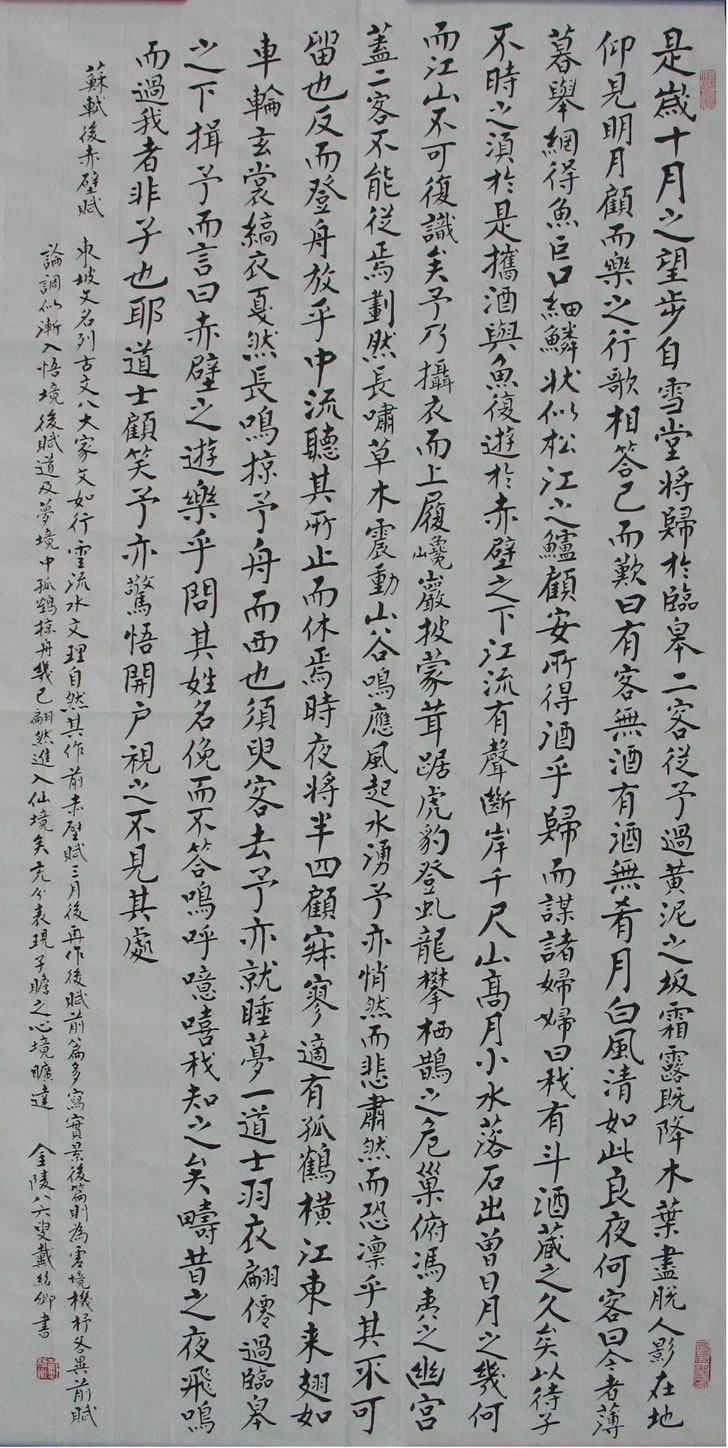 是歲十月之望步自雪堂將歸於臨皋二客從予過黃泥之坂霜露既降木葉盡脱人影在地
仰見明月顧而樂之行歌相答已而歎曰有客無酒有酒無肴月白風清如此良夜何客曰今者薄
暮舉網得魚巨口細鱗狀似松江之鱸顧安所得酒乎歸而謀諸婦婦曰我有斗酒藏之久矣以待子
不時之須於是攜酒與魚復遊於赤壁之下江流有聲斷岸千尺山高月小水落石出曾日月之幾何
而江山不可復識矣予乃攝衣而上履巉巖披蒙茸踞虎豹登虬龍攀栖鶻之危巢俯馮夷之幽宮
蓋二客不能從焉劃然長嘯草木震動山谷鳴應風起水湧予亦悄然而悲肅然而恐凛乎其不可
留也反而登舟放乎中流聽其所止而休焉時夜將半四顧寂寥適有孤鶴橫江東来翅如
車輪玄裳縞衣戛然長鳴掠予舟而西也須臾客去予亦就睡夢一道士羽衣翩僊過臨皋
之下揖予而言曰赤壁之遊樂乎問其姓名俛而不答嗚呼噫嘻我知之矣疇昔之夜飛鳴
而過我者非子也耶道士顧笑予亦驚悟開户視之不見其處
蘇軾後赤壁賦
東坡文名列古文八大家文如行雲流水文理自然其作前赤壁賦三月後再作後賦前篇多寫實景後篇則為虛境機杼各異前賦
論調似漸入悟境後賦道及夢境中孤鶴掠舟幾已翩然進入仙境矣充分表現子瞻之心境曠達 金陵八六叟戴 卿書